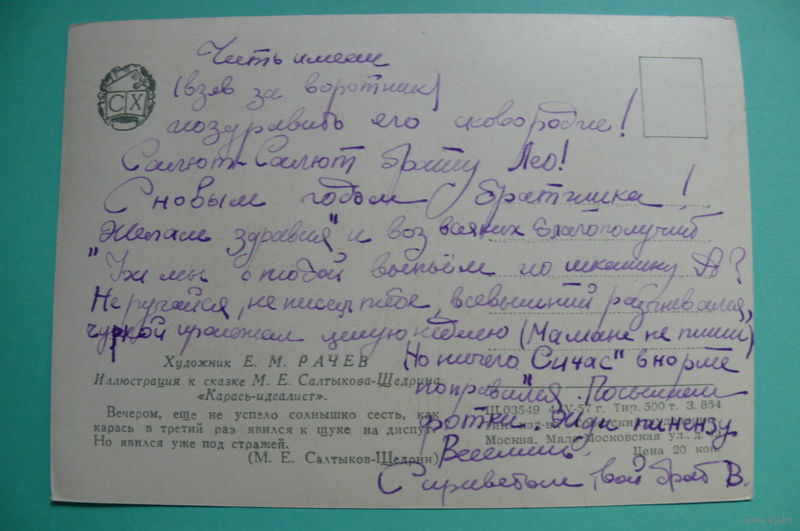 СХ
Честь имеем
(взяв за воротник)
поздравить его сковородие!
Салют-Салют брату Лео!
С новым годом братишка!
Желаем здравия" и воз всяких благополучий
"Уж мы с тобой выпьем по шкалику А?
Не ругайся, не писал тебе, всевышний разгневался,
целую неделю (Мамане не пиши)
Но ничего Сичас" в норме
поправился. Посылаем
фотки. Жди
Веселись
С приветом твой брат В.
Художник Е. М. РАЧЕВ
Иллюстрация к сказке М. Е. Салтыкова-Щедрина
«Карась-идеалист».
Вечером, еще не успело солнышко сесть, как
карась в третий раз явился к щуке на диспут.
Но явился уже под стражей.
(М. Е. Салтыков-Щедрин)
Ш 03549 4/IV-57 г. Тир. 500 т. З. 854
Москва, Мало-Московская ул., д.
Цена 20 коп.